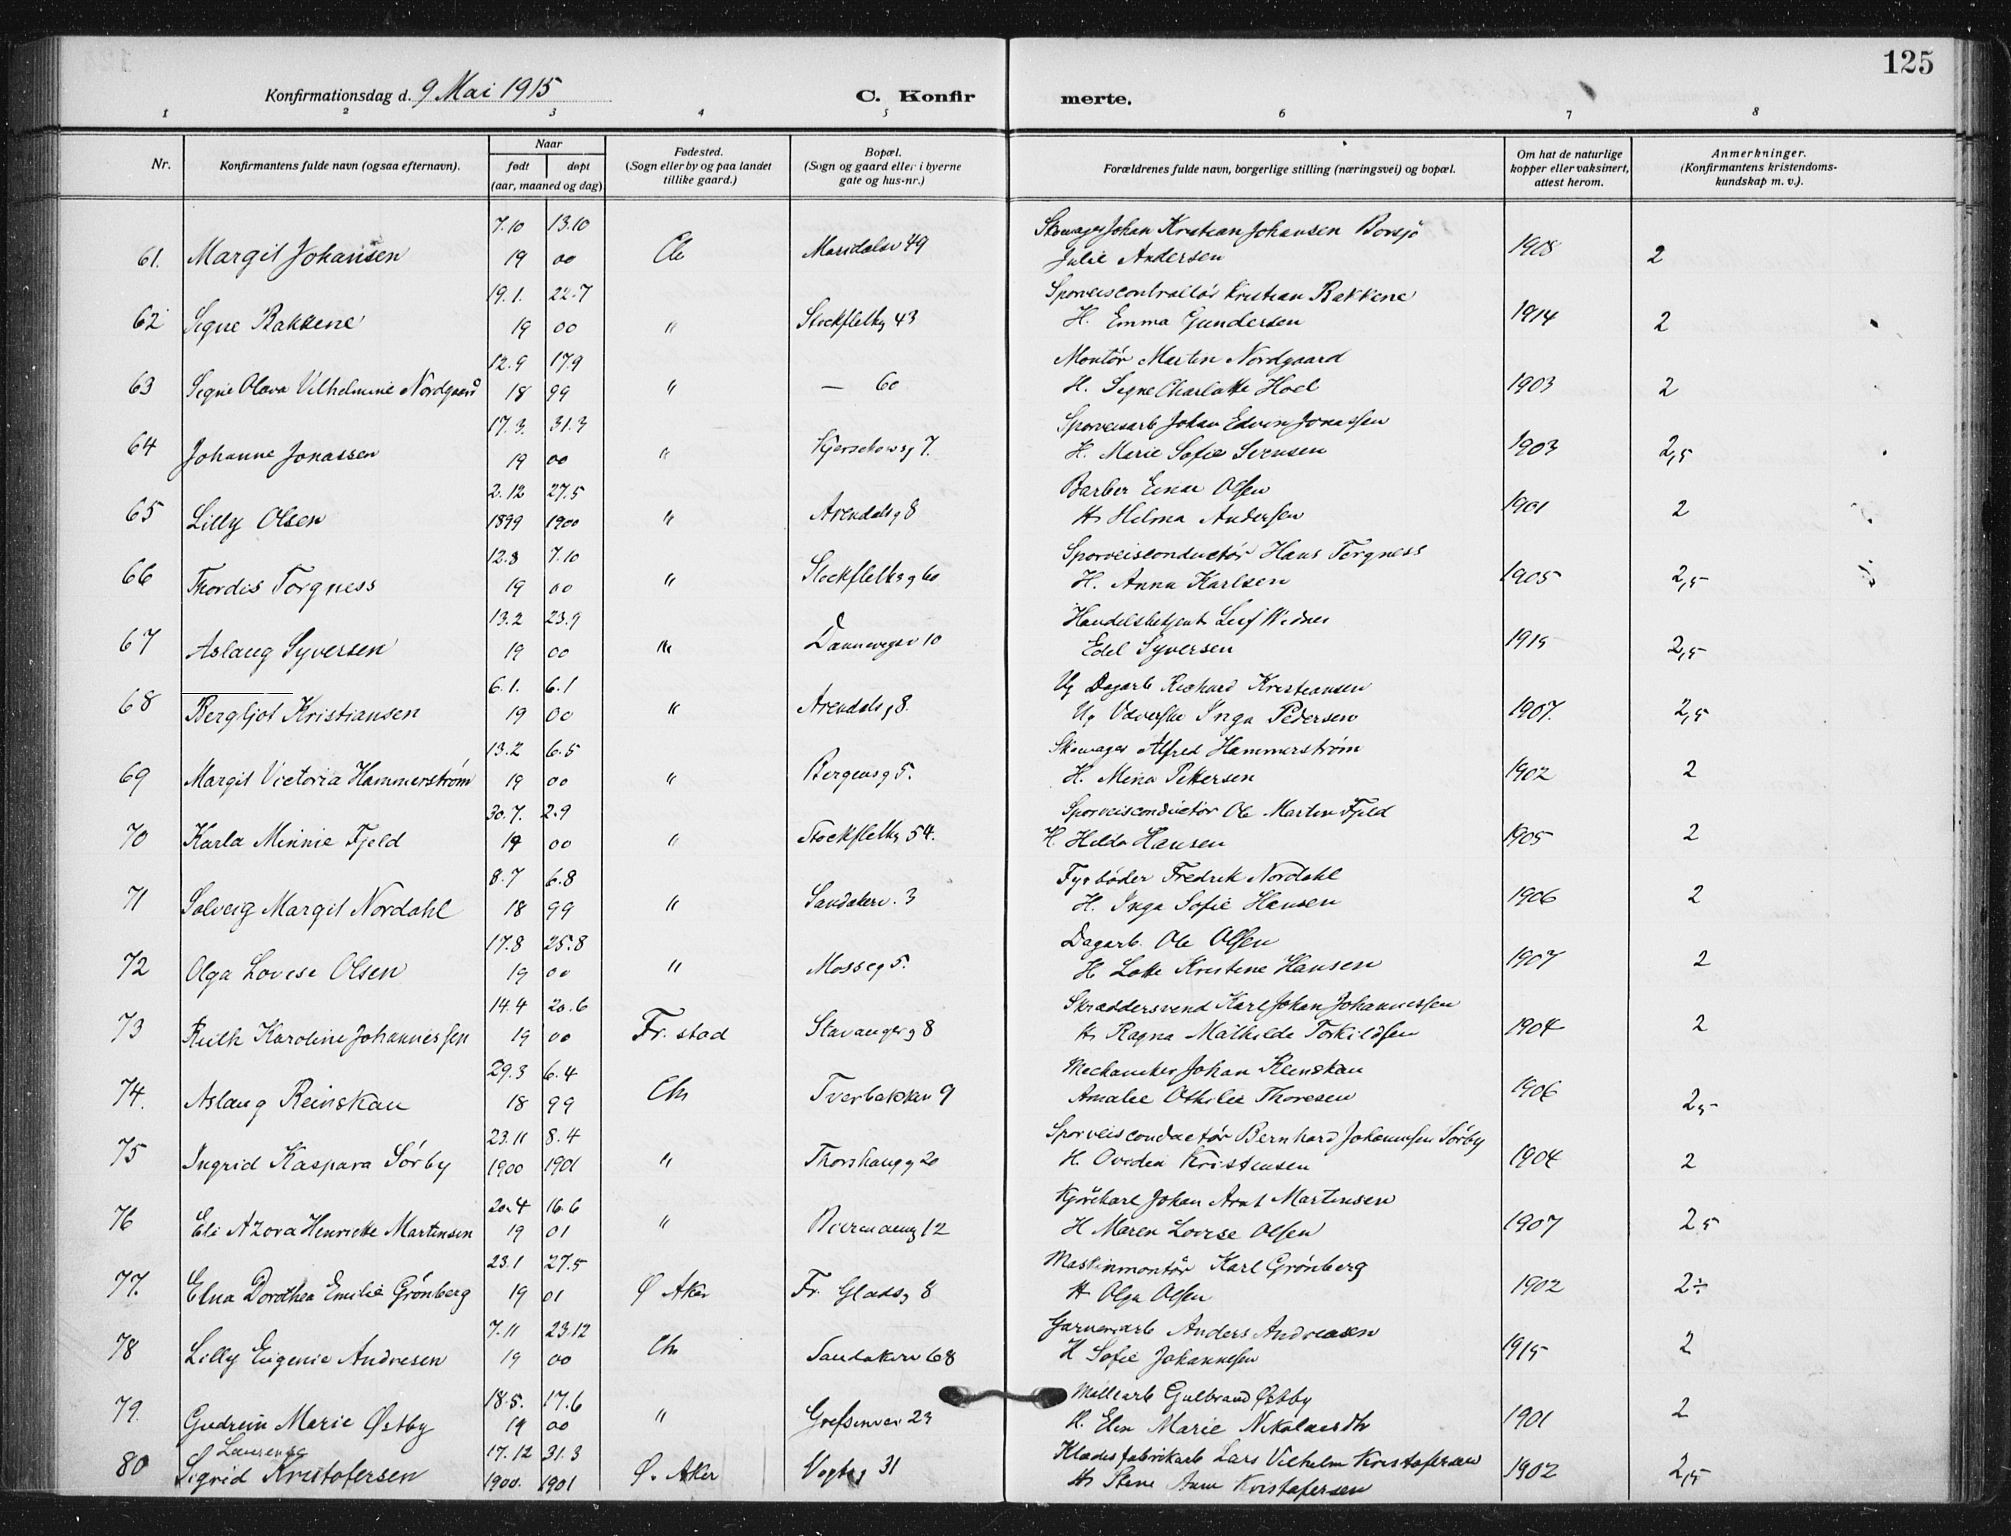 125
Konfirmationsdag d. 9 Mai 1915
C. Konfir merte.
1 2 3 4 5 6 7 8
Nr. Konfirmantens fulde navn (ogsaa efternavn). Naar født døpt (aar, maaned og dag) Fødested. (Sogn eller by og paa landet tillike gaard.) Bopæl. (Sogn og gaard eller i byerne gate og hus-nr.) Forældrenes fulde navn, borgerlige stilling (næringsvei) og bopæl. Om hat de naturlige kopper eller vaksinert, attest herom. Anmerkninger. (Konfirmantens kristendoms-kundskap m. v.).
7.10 13.10 Johan Kristian Johansen Borsjö
61. Margit Johansen 19 00 Ch Maridalsv 49 Julie Andersen 1908 2
19.1. 22.7 Sporveiscontrollör Kristian Bakkene
62 Signe Bakkene 19 00 " Stockflethg 43 H. Emma Gundersen 1914 2
12.9 17.9 Montör Martin Nordgaard
63 Signe Olava Vilhelmine Nordgaard 18 99 " — 60 H. Signe Charlotte Hoel 1903 2
17.3. 31.3 Sporveisarb Johan Edvin Jonassen
64 Johanne Jonassen 19 00 " 7. H. Marie Sofie Svensen 1903 2,5
2.12 27.5 Barber Einar Olsen
65 Lilly Olsen 1899 1900 " Arendalsg 8 H Helma Andersen 1901 2
12.8 7.10 Sporveisconductør Hans Torgness
66 Thordis Torgness 19 00 " Stockflethsg 60 H. Anna Karlsen 1905 2,5
13.2 23.9 Handelsbetjent Leif
67 Aslaug Syversen 19 00 " Dannevigsv 10 Edel Syversen 1915 2,5
6.1. 6.1 Ug Dagarb Richard Kristiansen
68 Bergljot Kristiansen 19 00 " Arendalsg 8. Ug Inga Pedersen 1907. 2,5
13.2 6.5 Skomager Alfred Hammerstrøm
69 Margit Victoria Hammerstrøm 19 00 " Bergensg 5. H. Mina Pettersen 1902 2
30.7. 2.9 Sporveisconductør Ole Martin Fjeld
70 Karla Minnie Fjeld 19 00 " Stockflethg 54. H Hilda Hansen 1905 2
8.7 6.8 Fyrbøder Fredrik Nordahl
71 Solveig Margit Nordahl 18 99 " Sandakerv. 3 H. Inga Sofie Hansen 1906 2
17.8 25.8 Dagarb. Ole Olsen
72 Olga Lovise Olsen 19 00 " Mosseg 5. H Lotte Kristine Hansen 1907 2
14.4 20.6 Skræddersvend Karl Johan Johannessen
73 Ruth Karoline Johannessen 19 00 Fr. stad Stavangerg 8 H Ragna Mathilde Torkildsen 1904 2
29.3 6.4 Mechaniker Johan Reinskau
74. Aslaug Reinskau 18 99 Ch Tverbakken 9 Amalie Othilie Thoresen 1906 2,5
23.11 8.4 Sporveisconductør Bernhard Johannsen Sörby
75 Ingrid Kaspara Sörby 1900 1901 " Thorshaugg 20 H. Kristensen 1904 2
20.4 16.6 Kjörekarl Johan Arnt Martinsen
76 Eli Azora Henriette Martinsen 19 01 " 12 H Maren Lovise Olsen 1907 2,5
23.1 27.5 Maskinmontör Karl Grönberg
77. Elna Dorothea Emilie Grönberg 19 01 Ø Aker Fr. Gladsg 8 H Olga Olsen 1902 2÷
7.11 23.12 Garverarb Anders Andreasen
78 Lilly Eugenie Andresen 19 00 Ch Sandakerv 68 H Sofie Johannesen 1915 2
18.5. 17.6 Møllearb Gulbrand Østby
79. Gudrun Marie Østby 19 00 " Grefsenvei 23 H. Elen Marie Nikolaisdtr 1901 2
Laurensa 17.12 31.3 Klædesfabrikarb Lars Vilhelm Kristofersen
80 Sigrid Kristofersen 1900. 1901 Ø. Aker Vogtsg 31 H Stine Anne Kristofersen 1902 2,5